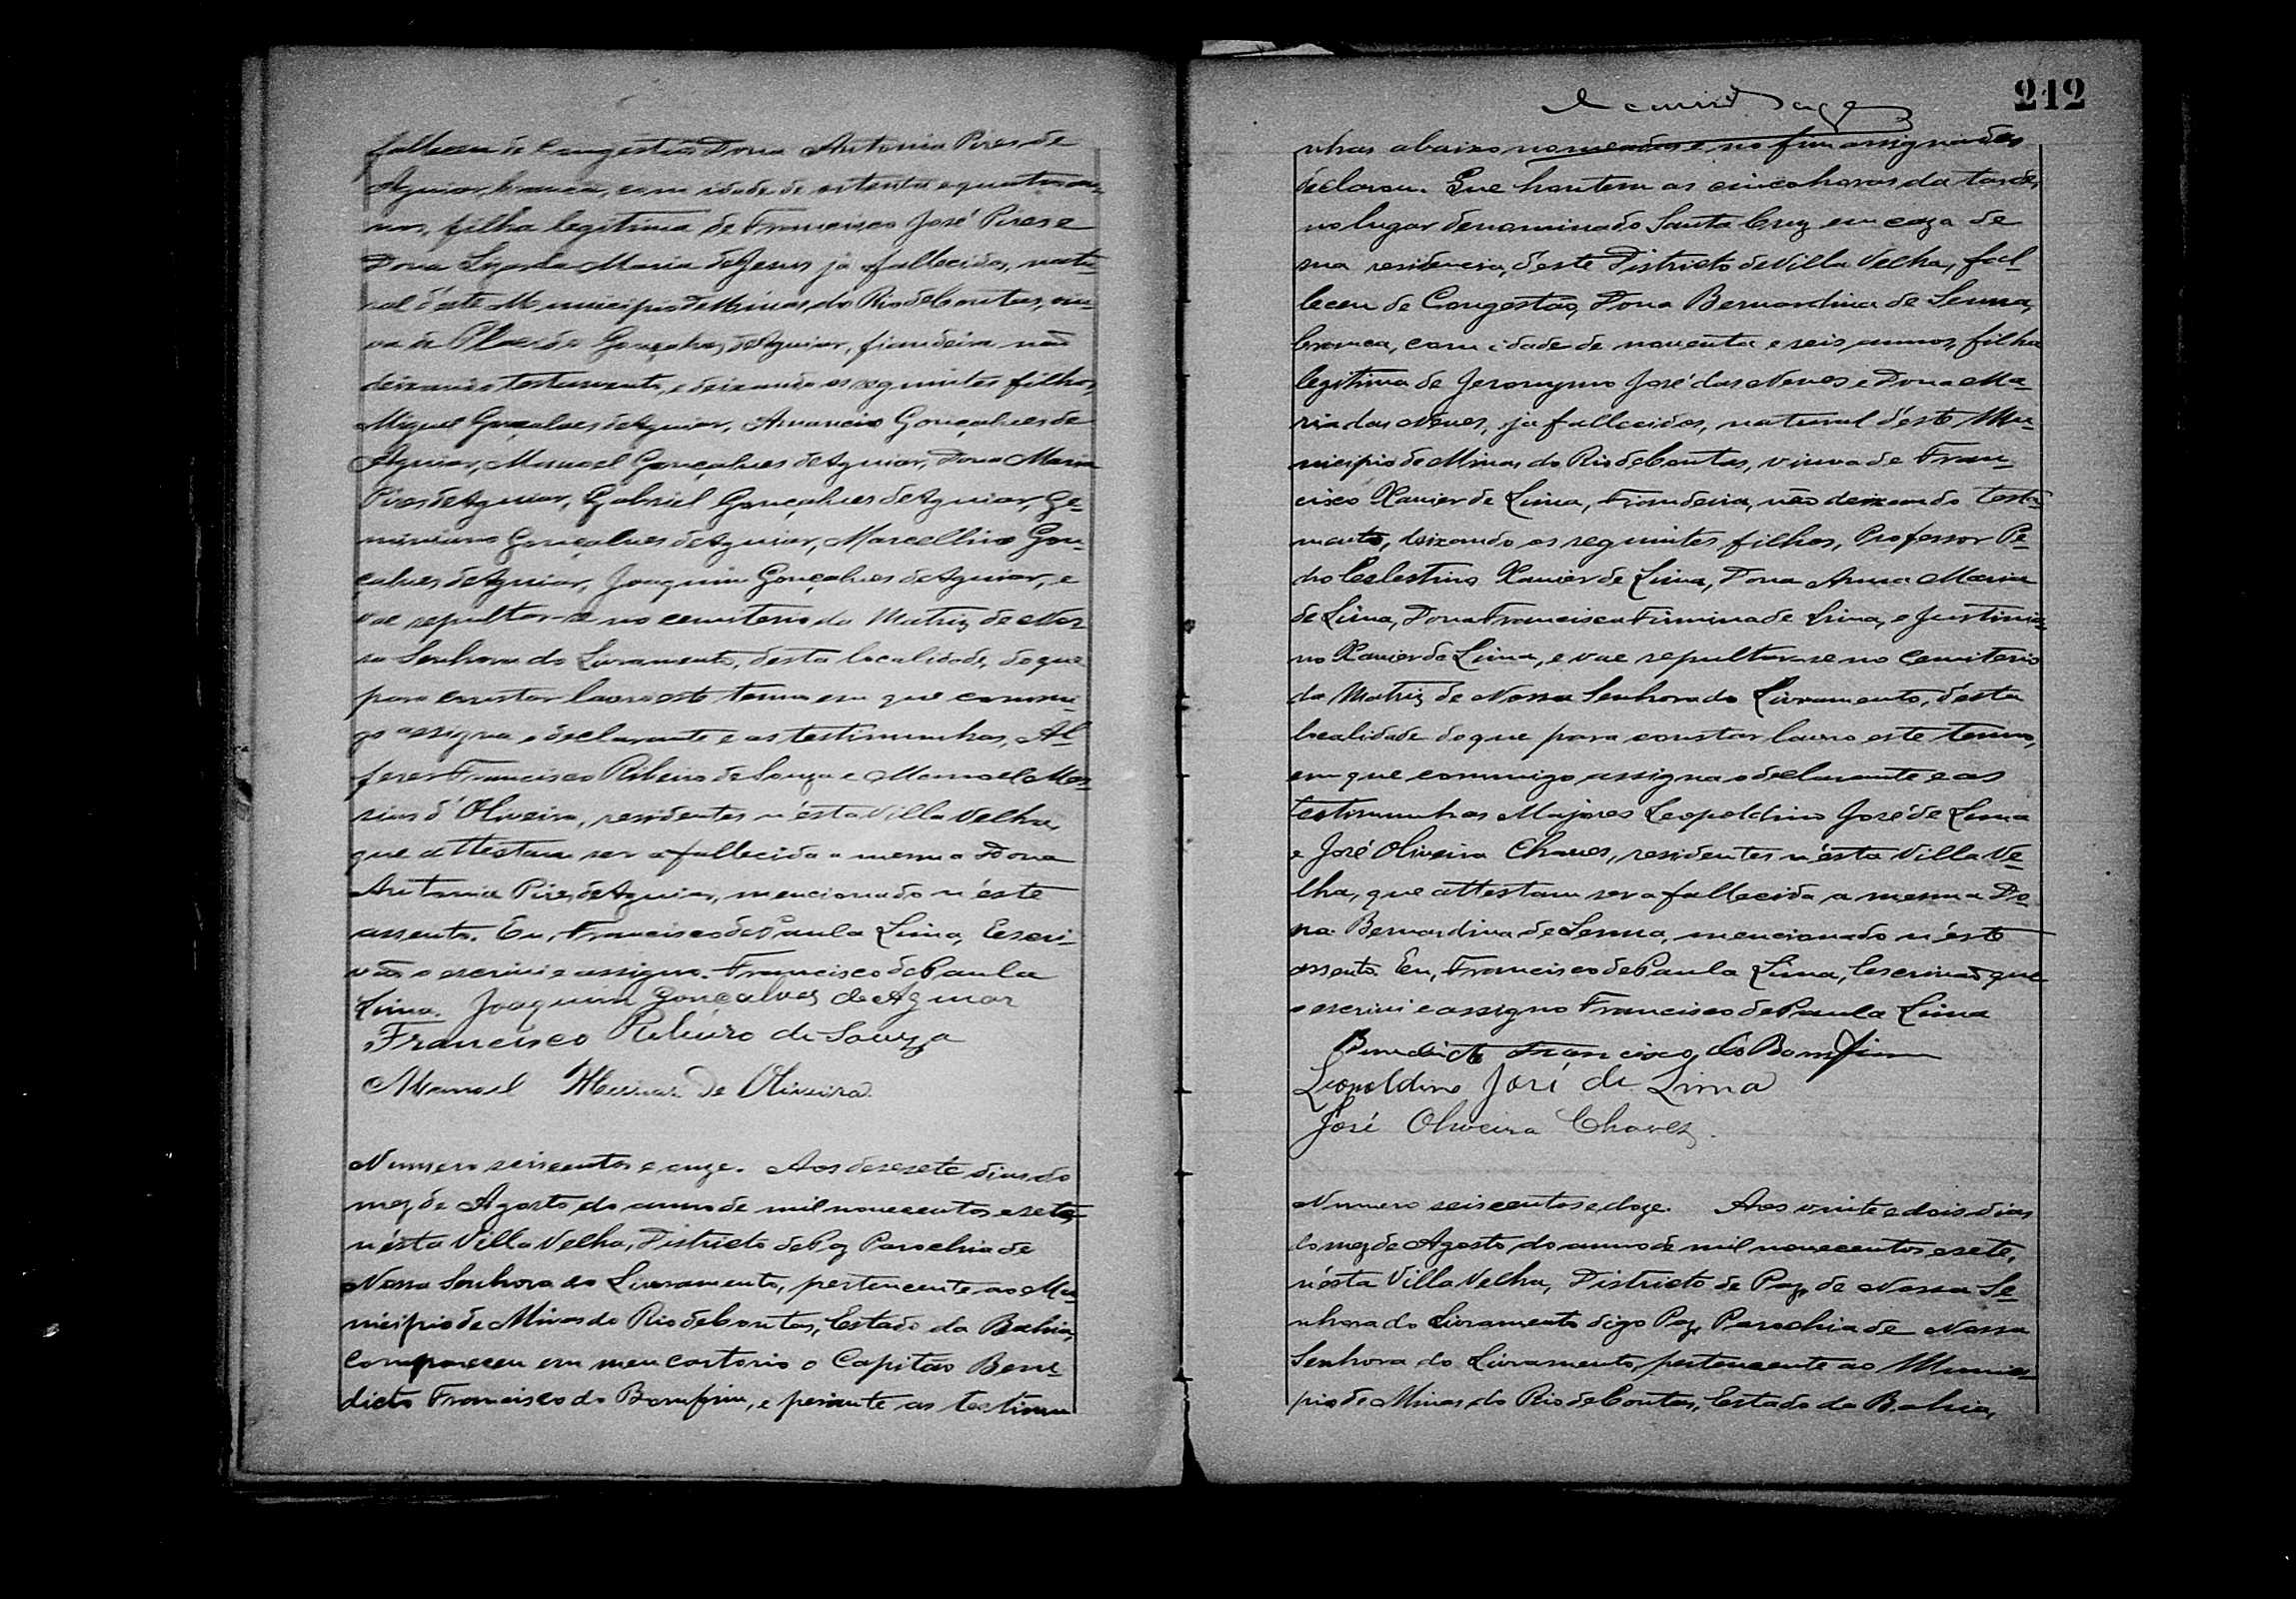 falleceu de Congestão Dona Antonia Pires de
Aguiar, branca, com idade de oitenta e quatro an-
nos, filha legitima de Francisco José Pires e
Dona Maria de Jesus já fallecidos, natu-
ral d'este Municipio de Minas do Rio de Contas, viu-
va de Placido Gonçalves de Aguiar, fiandeira não
deixando testamento, e deixando os seguintes filhos,
Miguel Gonçalves de Aguiar, Amancio Gonçalves de
Aguiar, Manoel Gonçalves de Aguiar, Dona Maria
Pires de Aguiar, Gabriel Gonçalves de Aguiar, Ge-
miniano Gonçalves de Aguiar, Marcellino Gon-
çalves de Aguiar, Joaquim Gonçalves de Aguiar, e
vae sepultar-se no cemiterio da Matriz de Nos-
sa Senhora do Livramento, desta localidade, do que
para constar lavro este termo em que commi-
go assigna o declarante e as testimunhas, Al-
feres Francisco Ribeiro de Souza e Manoel Mes-
sias d'Oliveira, residentes n'ésta Villa Velha,
que attestam ser a fallecida a mesma Dona
Antonia Pires de Aguiar, mencionado n'éste
assento. Eu, Francisco de Paula Lima, Escri-
vão o escrivi e assigno. Francisco de Paula
Lima. Joaquim Gonçalves de Aguiar
Francisco Ribeiro de Souza
Manoel de Oliveira
Numero seiscentos e onze. Aos desesete dias do
mez de Agosto do anno de mil novecentos e sete,
n'ésta Villa Velha, Districto de Paz Parochia de
Nossa Senhora do Livramento, pertencente ao Mu-
nicipio de Minas do Rio de Contas, Estado da Bahia,
compareceu em meu cartorio o Capitão Bene-
dicto Francisco do Bomfim, e perante as testimu
212
nhas abaixo nomeadas e no fim assignadas
declarou. Que hontem as cinco horas da tarde,
no lugar denominado Santa Cruz em caza de
sua residencia, d'este Districto de Villa Velha, fal-
leceu de Congestão, Dona Bernardina de Senna,
branca, com idade de noventa e seis annos, filha
legitima de Jeronymo José das Neves e Dona Ma-
ria das Neves, já fallecidos, natural d'éste Mu-
nicipio de Minas do Rio de Contas, viuva de Fran-
cisco Xavier de Lima, Fiandeira, não deixando testa-
mento, deixando os seguintes filhos, Professor Pe-
dro Celestino Xavier de Lima, Dona Anna Maria
de Lima, Dona Francisca Firmina de Lima, e Justinia-
no Xavier de Lima, e vae sepultar-se no Cemiterio
da Matriz de Nossa Senhora do Livramento, d'ésta
localidade do que para constar lavro este termo,
em que commigo assigna o declarante e as
testimunhas Majores Leopoldino José de Lima
e José Oliveira Chaves, residentes n'ésta Villa Ve-
lha, que attestam ser a fallecida a mesma Do-
na Bernardina de Senna, mencionado n'éste
assento. Eu, Francisco de Paula Lima, Escrivão que
o escrivi e assigno Francisco de Paula Lima
Benedicto Francisco do Bomfim
Leopoldino José de Lima
José Oliveira Chaves.
Numero seiscentos e doze. Aos vinte e dois dias
do mez de Agosto do anno de mil novecentos e sete,
n'ésta Villa Velha, Districto de Paz, de Nossa Se-
nhora do Livramento digo Paz, Parochia de Nossa
Senhora do Livramento, pertencente ao Munici-
pio de Minas do Rio de Contas, Estado da Bahia,